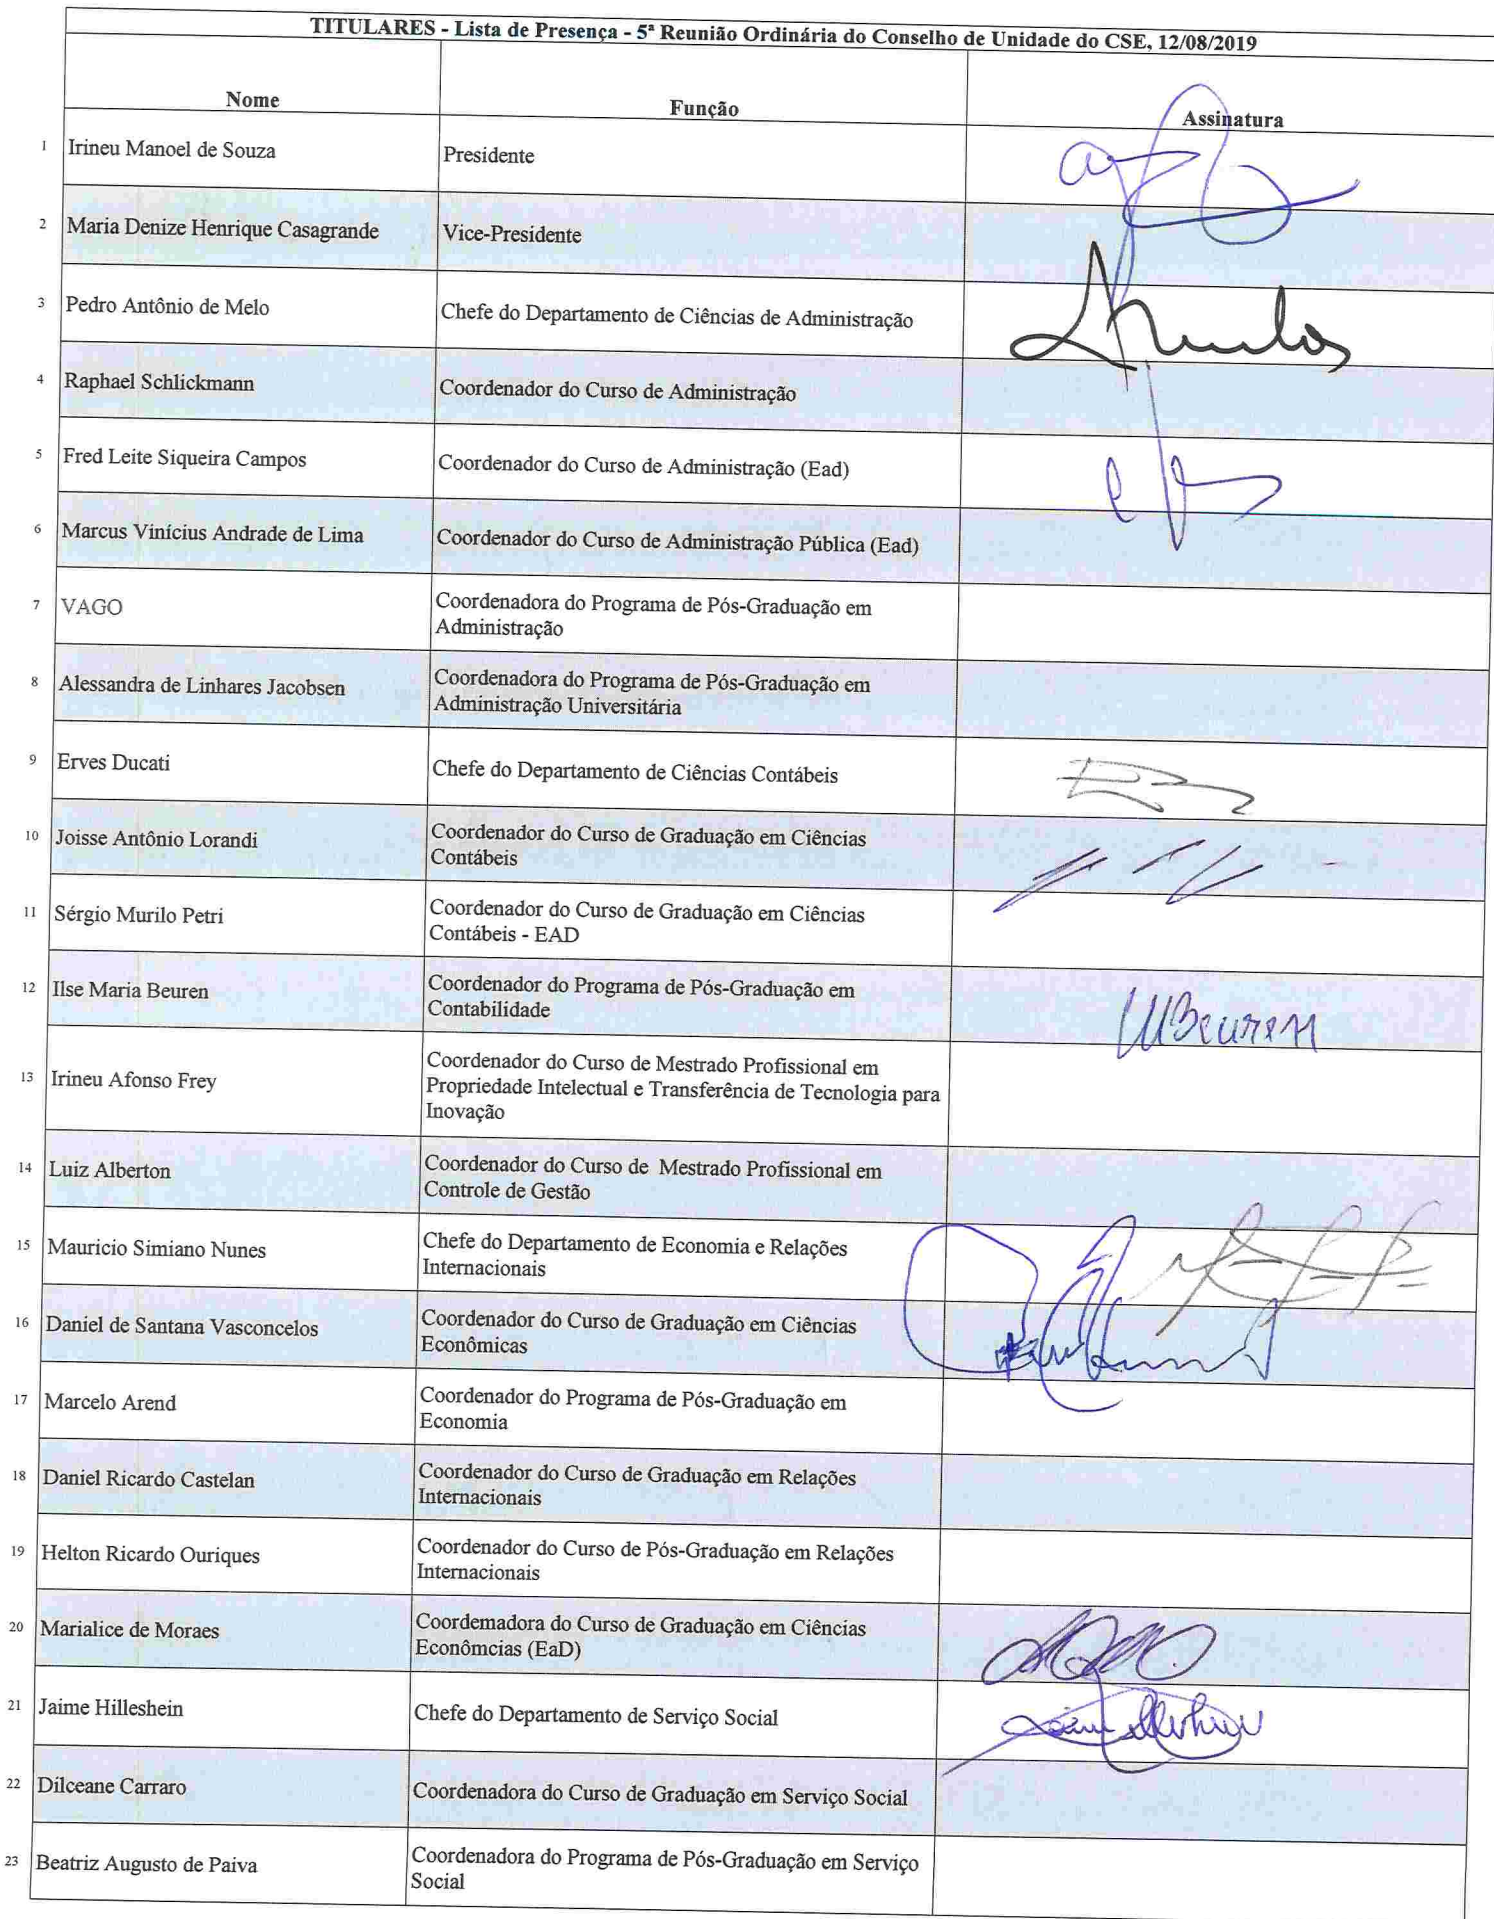 TITULARES - Lista de Presença - 5ª Reunião Ordinária do Conselho de Unidade do CSE, 12/08/2019
Nome Função Assinatura
1 Irineu Manoel de Souza Presidente
2 Maria Denize Henrique Casagrande Vice-Presidente
3 Pedro Antônio de Melo Chefe do Departamento de Ciências de Administração
4 Raphael Schlickmann Coordenador do Curso de Administração
5 Fred Leite Siqueira Campos Coordenador do Curso de Administração (Ead)
6 Marcus Vinícius Andrade de Lima Coordenador do Curso de Administração Pública (Ead)
7 VAGO Coordenadora do Programa de Pós-Graduação em
Administração
8 Alessandra de Linhares Jacobsen Coordenadora do Programa de Pós-Graduação em
Administração Universitária
9 Erves Ducati Chefe do Departamento de Ciências Contábeis
10 Joisse Antônio Lorandi Coordenador do Curso de Graduação em Ciências
Contábeis
11 Sérgio Murilo Petri Coordenador do Curso de Graduação em Ciências
Contábeis - EAD
12 Ilse Maria Beuren Coordenador do Programa de Pós-Graduação em
Contabilidade
IMBeuren
13 Irineu Afonso Frey Coordenador do Curso de Mestrado Profissional em
Propriedade Intelectual e Transferência de Tecnologia para
Inovação
14 Luiz Alberton Coordenador do Curso de Mestrado Profissional em
Controle de Gestão
15 Mauricio Simiano Nunes Chefe do Departamento de Economia e Relações
Internacionais
16 Daniel de Santana Vasconcelos Coordenador do Curso de Graduação em Ciências
Econômicas
17 Marcelo Arend Coordenador do Programa de Pós-Graduação em
Economia
18 Daniel Ricardo Castelan Coordenador do Curso de Graduação em Relações
Internacionais
19 Helton Ricardo Ouriques Coordenador do Curso de Pós-Graduação em Relações
Internacionais
20 Marialice de Moraes Coordemadora do Curso de Graduação em Ciências
Econômcias (EaD)
21 Jaime Hilleshein Chefe do Departamento de Serviço Social
22 Dilceane Carraro Coordenadora do Curso de Graduação em Serviço Social
23 Beatriz Augusto de Paiva Coordenadora do Programa de Pós-Graduação em Serviço
Social